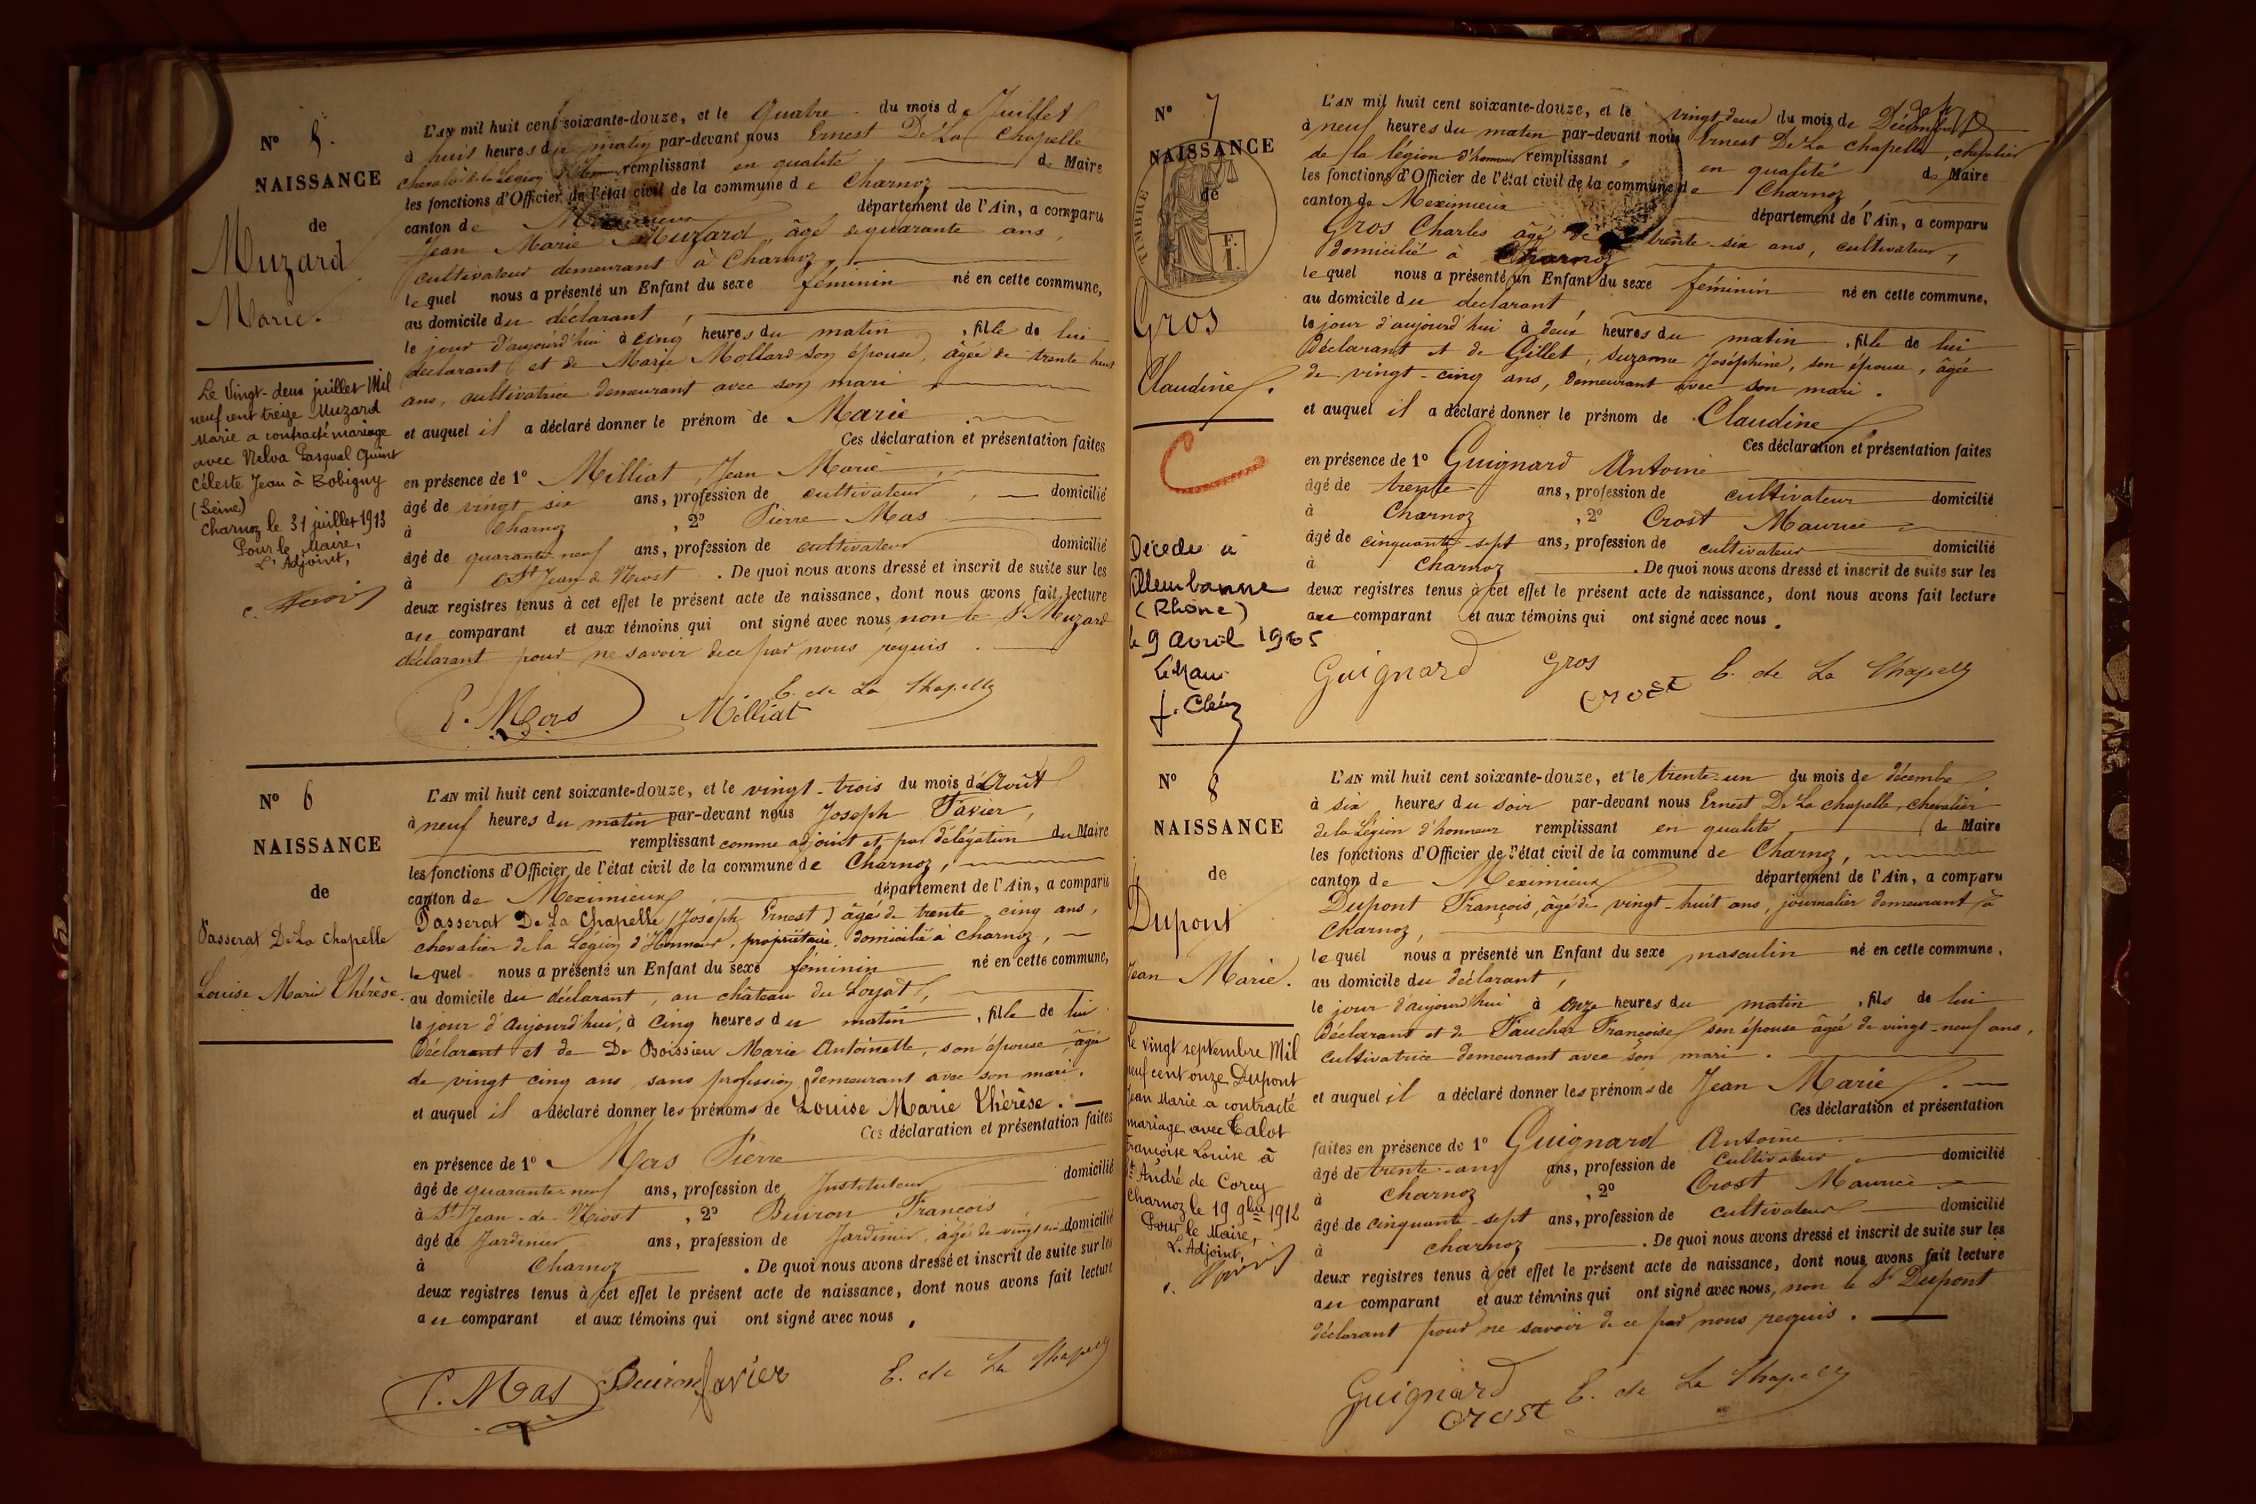 N° 5.
NAISSANCE
de
Muzard
Marie.
Le Vingt-deux juillet Mil
neuf cent treize Muzard
Marie a contracté mariage
avec Nelva Pasqual Quint
Céleste Jean à Bobigny
(Seine)
Charnoz le 31 juillet 1913
Pour le Maire,
L'Adjoint,
L'AN mil huit cent soixante-douze, et le Quatre du mois de Juillet
à huit heures du matin par-devant nous Ernest De La Chapelle
chevalier de la Légion d'Hon remplissant en qualité de Maire
les fonctions d'Officier de l'état civil de la commune de Charnoz
canton de Meximieux département de l'Ain, a comparu
Jean Marie Muzard, âgé de quarante ans,
cultivateur demeurant à Charnoz,
lequel nous a présenté un Enfant du sexe féminin né en cette commune,
au domicile du déclarant,
le jour d'aujourd'hui à cinq heures du matin, fille de lui
déclarant et de Marie Mollard son épouse, âgée de trente huit
ans, cultivatrice demeurant avec son mari,
et auquel il a déclaré donner le prénom de Marie.
Ces déclaration et présentation faites
en présence de 1° Milliat, Jean Marie,
âgé de vingt six ans, profession de cultivateur, domicilié
à Charnoz, 2° Pierre Mas
âgé de quarante-neuf ans, profession de cultivateur domicilié
à St Jean de Niost. De quoi nous avons dressé et inscrit de suite sur les
deux registres tenus à cet effet le présent acte de naissance, dont nous avons fait lecture
au comparant et aux témoins qui ont signé avec nous, non le Sr Muzard
déclarant pour ne savoir de ce par nous requis.
E. de La Chapelle
P. Mas Milliat
N° 6
NAISSANCE
de
Passerat De La Chapelle
Louise Marie Thérèse.
L'AN mil huit cent soixante-douze, et le vingt-trois du mois d'Août
à neuf heures du matin par-devant nous Joseph Favier,
remplissant comme adjoint et par délégation du Maire
les fonctions d'Officier de l'état civil de la commune de Charnoz,
canton de Meximieux, département de l'Ain, a comparu
Passerat De La Chapelle (Joseph Ernest) âgé de trente cinq ans,
chevalier de la Légion d'Honneur, propriétaire, domicilié à Charnoz,
lequel nous a présenté un Enfant du sexe féminin né en cette commune,
au domicile du déclarant, au château du Loyat,
le jour d'aujourd'hui, à cinq heures du matin, fille de lui
Déclarant et de De Boissieu Marie Antoinette, son épouse, âgée
de vingt cinq ans sans profession, demeurant avec son mari.
et auquel il a déclaré donner les prénoms de Louise Marie Thérèse.
Ces déclaration et présentation faites
en présence de 1° Mas Pierre
âgé de quarante-neuf ans, profession de Instituteur domicilié
à St Jean-de-Niost, 2° Buiron François
âgé de Jardinier ans, profession de Jardinier, âgé de vingt six domicilié
à Charnoz. De quoi nous avons dressé et inscrit de suite sur les
deux registres tenus à cet effet le présent acte de naissance, dont nous avons fait lecture
au comparant et aux témoins qui ont signé avec nous,
P. Mas Buiron favier E. de La Chapelle
N° 7
NAISSANCE
de
TIMBRE
F.
I.
Gros
Claudine.
Décédée à
Villeurbanne
(Rhône)
le 9 Avril 1965
Le Maire
L'AN mil huit cent soixante-douze, et le vingt deux du mois de Décembre
à neuf heures du matin par-devant nous Ernest De La Chapelle, chevalier
de la légion d'honneur remplissant en qualité de Maire
les fonctions d'Officier de l'état civil de la commune de Charnoz
canton de Meximieux département de l'Ain, a comparu
Gros Charles âgé de trente-six ans, cultivateur,
domicilié à Charnoz
lequel nous a présenté un Enfant du sexe féminin né en cette commune,
au domicile du déclarant,
le jour d'aujourd'hui à deux heures du matin, fille de lui
Déclarant et de Gillet, Suzanne Joséphine, son épouse, âgée
de vingt-cinq ans, demeurant avec son mari.
et auquel il a déclaré donner le prénom de Claudine.
Ces déclaration et présentation faites
en présence de 1° Guignard Antoine
âgé de trente ans, profession de cultivateur domicilié
à Charnoz, 2° Crost Maurice
âgé de cinquante-sept ans, profession de cultivateur domicilié
à Charnoz. De quoi nous avons dressé et inscrit de suite sur les
deux registres tenus à cet effet le présent acte de naissance, dont nous avons fait lecture
au comparant et aux témoins qui ont signé avec nous.
Guignard Gros Crost E. de La Chapelle
N° 8
NAISSANCE
de
Dupont
Jean Marie.
Le vingt septembre Mil
neuf cent onze Dupont
Jean Marie a contracté
mariage avec Calot
Françoise Louise à
St André de Corcy
Charnoz le 19 9bre 1912
Pour le Maire,
L'Adjoint,
L'AN mil huit cent soixante-douze, et le trente-un du mois de décembre
à six heures du soir par-devant nous Ernest De La Chapelle, chevalier
de la Légion d'honneur remplissant en qualité de Maire
les fonctions d'Officier de l'état civil de la commune de Charnoz,
canton de Meximieux département de l'Ain, a comparu
Dupont François, âgé de vingt-huit ans, journalier demeurant à
Charnoz,
lequel nous a présenté un Enfant du sexe masculin né en cette commune,
au domicile du déclarant,
le jour d'aujourd'hui à onze heures du matin, fils de lui
Déclarant et de Faucher Françoise son épouse âgée de vingt-neuf ans,
cultivatrice demeurant avec son mari.
et auquel il a déclaré donner les prénoms de Jean Marie.
Ces déclaration et présentation
faites en présence de 1° Guignard Antoine
âgé de trente-ans ans, profession de cultivateur domicilié
à Charnoz, 2° Crost Maurice
âgé de cinquante-sept ans, profession de cultivateur domicilié
à Charnoz. De quoi nous avons dressé et inscrit de suite sur les
deux registres tenus à cet effet le présent acte de naissance, dont nous avons fait lecture
au comparant et aux témoins qui ont signé avec nous, non le Sr Dupont
déclarant pour ne savoir de ce par nous requis.
Guignard Crost E. de La Chapelle